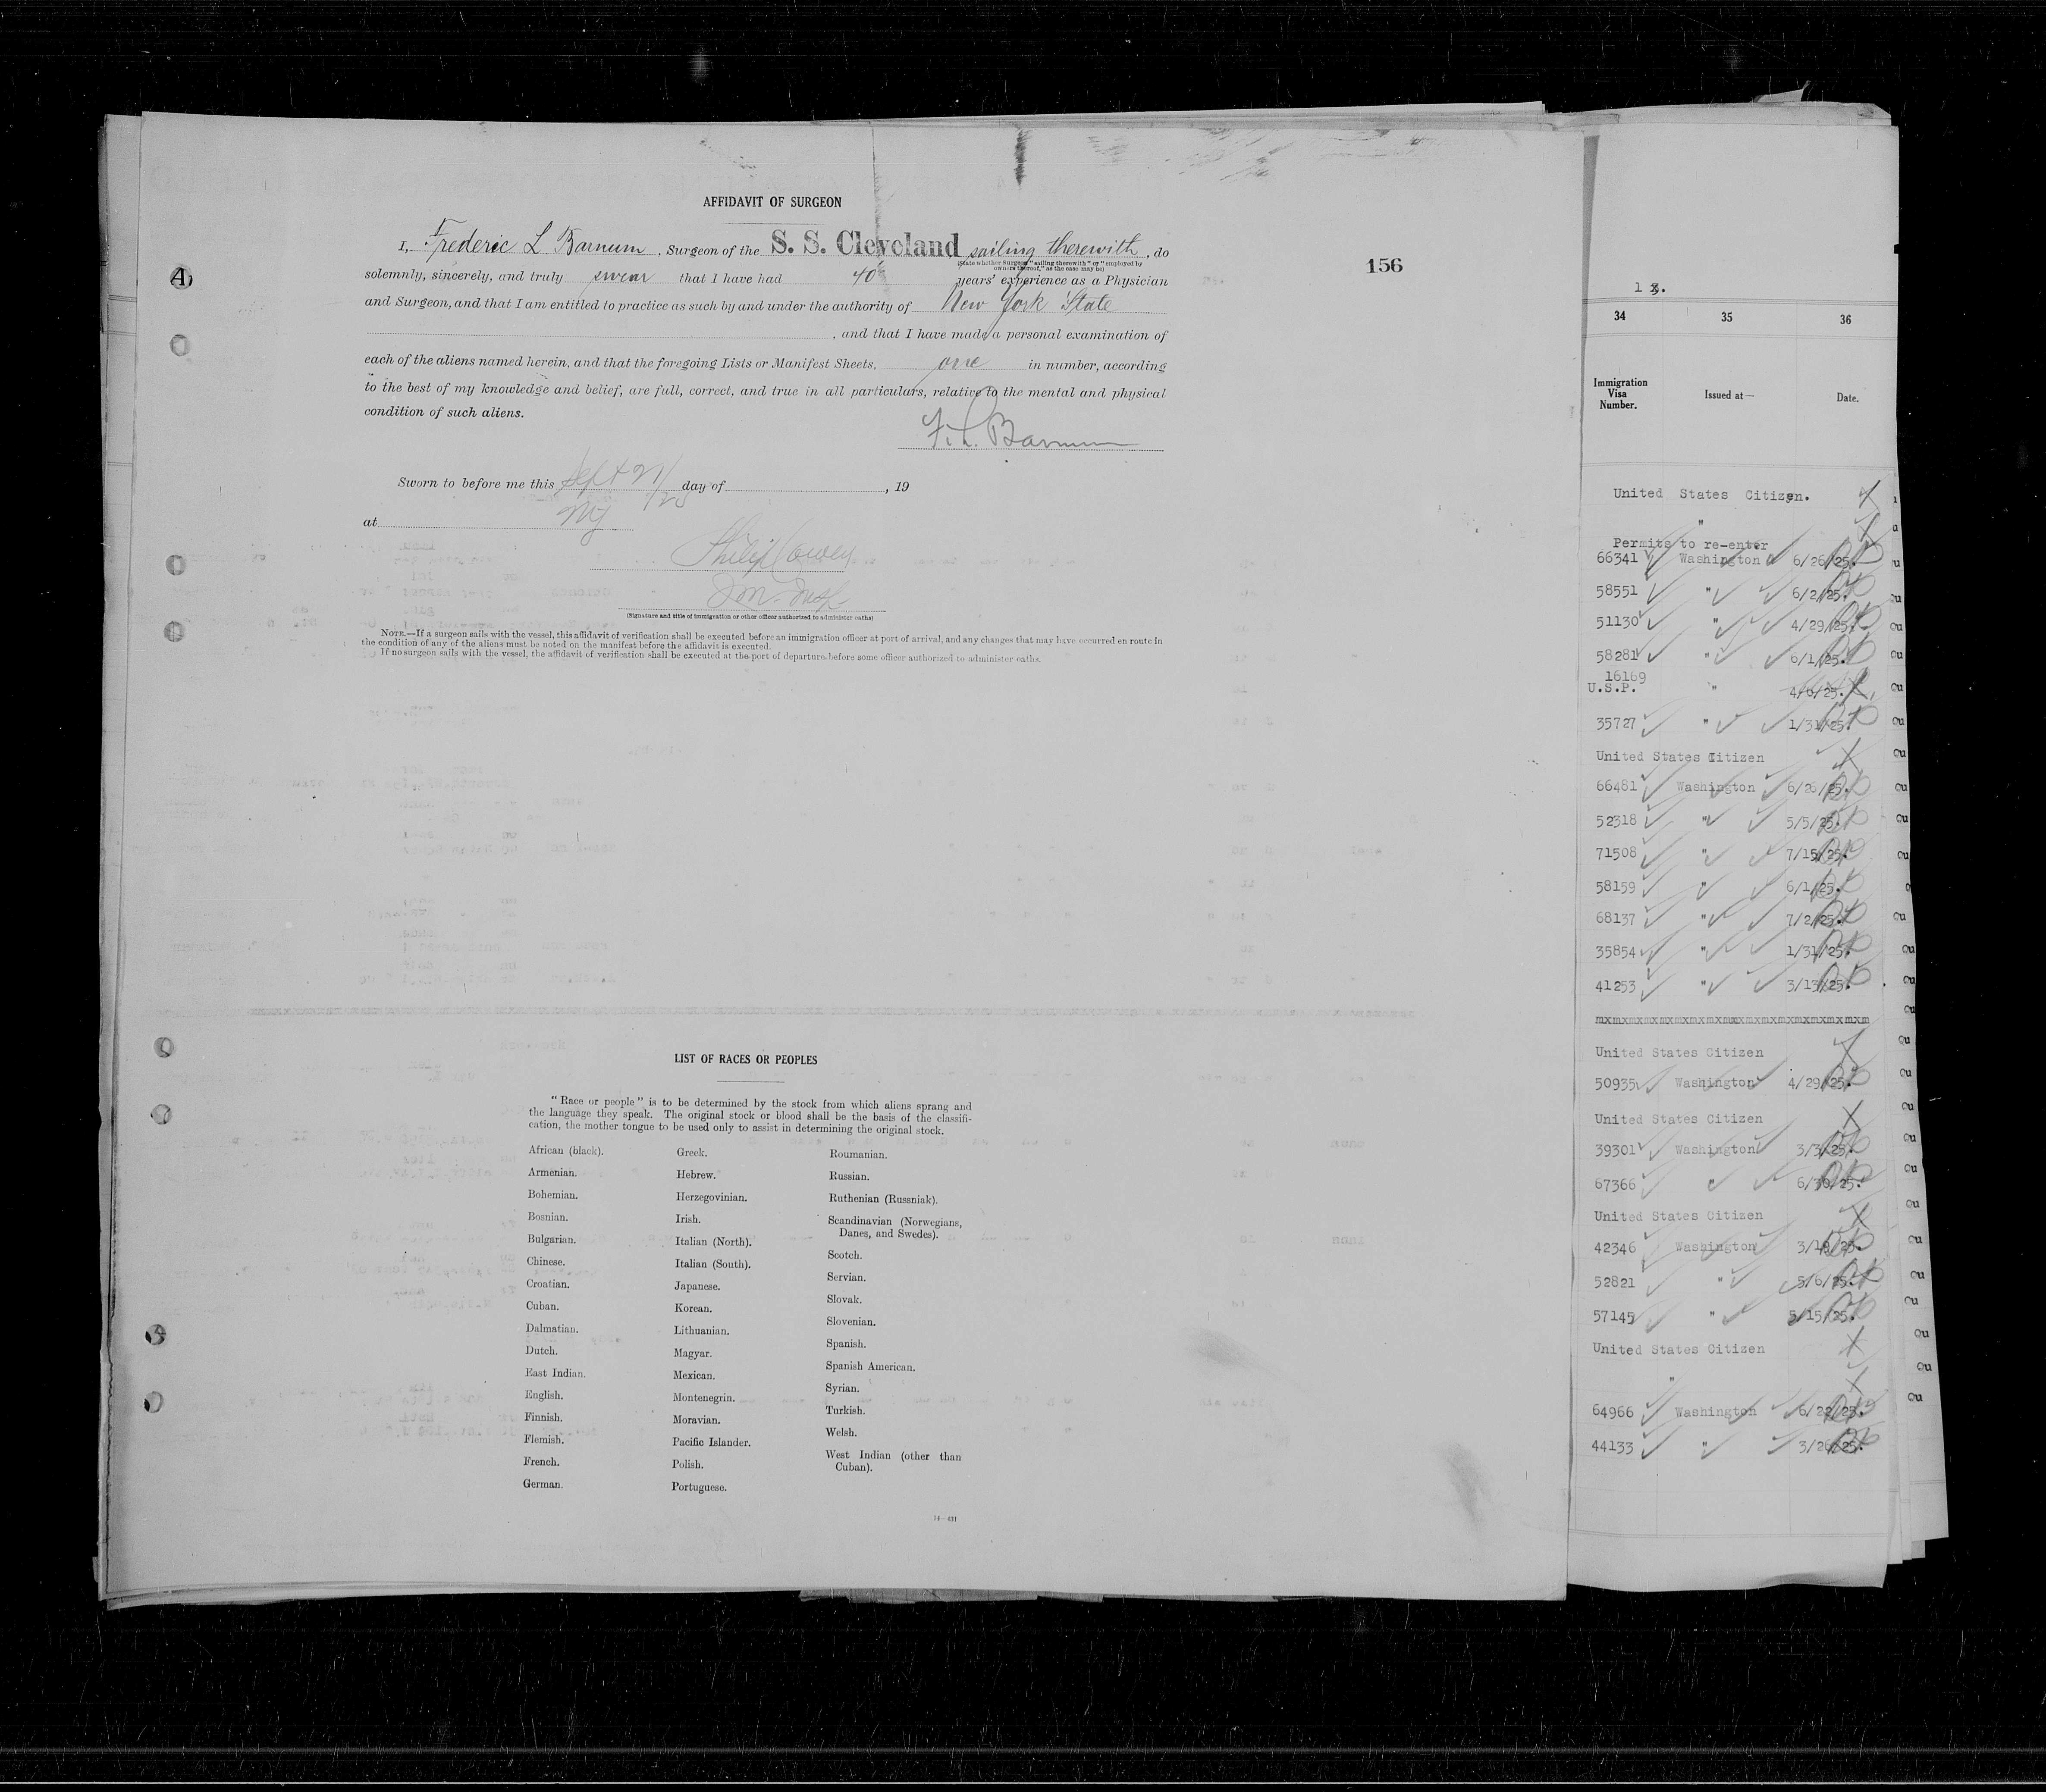 AFFIDAVIT OF SURGEON
I, Frederic L Barnum, Surgeon of the S. S. Cleveland sailing therewith, do
(State whether Surgeon "sailing therewith" or "employed by
owners thereof," as the case may be)
solemnly, sincerely, and truly swear that I have had 40 years' experience as a Physician
and Surgeon, and that I am entitled to practice as such by and under the authority of New York State
, and that I have made a personal examination of
each of the aliens named herein, and that the foregoing Lists or Manifest Sheets, one in number, according
to the best of my knowledge and belief, are full, correct, and true in all particulars, relative to the mental and physical
condition of such aliens.
F. L. Barnum
Sworn to before me this Sept 21/25 day of , 19
at NY
Philip Cowen
Imm. Insp.
(Signature and title of immigration or other officer authorized to administer oaths)
NOTE.—If a surgeon sails with the vessel, this affidavit of verification shall be executed before an immigration officer at port of arrival, and any changes that may have occurred en route in
the condition of any of the aliens must be noted on the manifest before the affidavit is executed.
If no surgeon sails with the vessel, the affidavit of verification shall be executed at the port of departure before some officer authorized to administer oaths.
156
LIST OF RACES OR PEOPLES
"Race or people" is to be determined by the stock from which aliens sprang and
the language they speak. The original stock or blood shall be the basis of the classifi-
cation, the mother tongue to be used only to assist in determining the original stock.
African (black).
Armenian.
Bohemian.
Bosnian.
Bulgarian.
Chinese.
Croatian.
Cuban.
Dalmatian.
Dutch.
East Indian.
English.
Finnish.
Flemish.
French.
German.
Greek.
Hebrew.
Herzegovinian.
Irish.
Italian (North).
Italian (South).
Japanese.
Korean.
Lithuanian.
Magyar.
Mexican.
Montenegrin.
Moravian.
Pacific Islander.
Polish.
Portuguese.
Roumanian.
Russian.
Ruthenian (Russniak).
Scandinavian (Norwegians,
Danes, and Swedes).
Scotch.
Servian.
Slovak.
Slovenian.
Spanish.
Spanish American.
Syrian.
Turkish.
Welsh.
West Indian (other than
Cuban).
34 35 36
Immigration
Visa
Number.
Issued at—
Date.
United States Citizen.
"
Permits to re-enter
66341 Washington 6/26/25.
58551 " 6/2/25.
51130 " 4/29/25.
58281 " 6/1/25.
16169
U.S.P. " 4/6/25.
35727 " 1/31/25.
United States Citizen
66481 Washington 6/26/25.
52318 " 5/5/25.
71508 " 7/15/25.
58159 " 6/1/25.
68137 " 7/2/25.
35854 " 1/31/25.
41253 " 3/13/25.
mxmxmxmxmxmxmxmxmxmxmxmxmxmxmxmxmxm
United States Citizen
50935 Washington 4/29/25.
United States Citizen
39301 Washington 3/3/25.
67366 " 6/30/25.
United States Citizen
42346 Washington 3/19/25.
52821 " 5/6/25.
57145 " 5/15/25.
United States Citizen
"
64966 Washington 6/22/25.
44133 " 3/26/25.